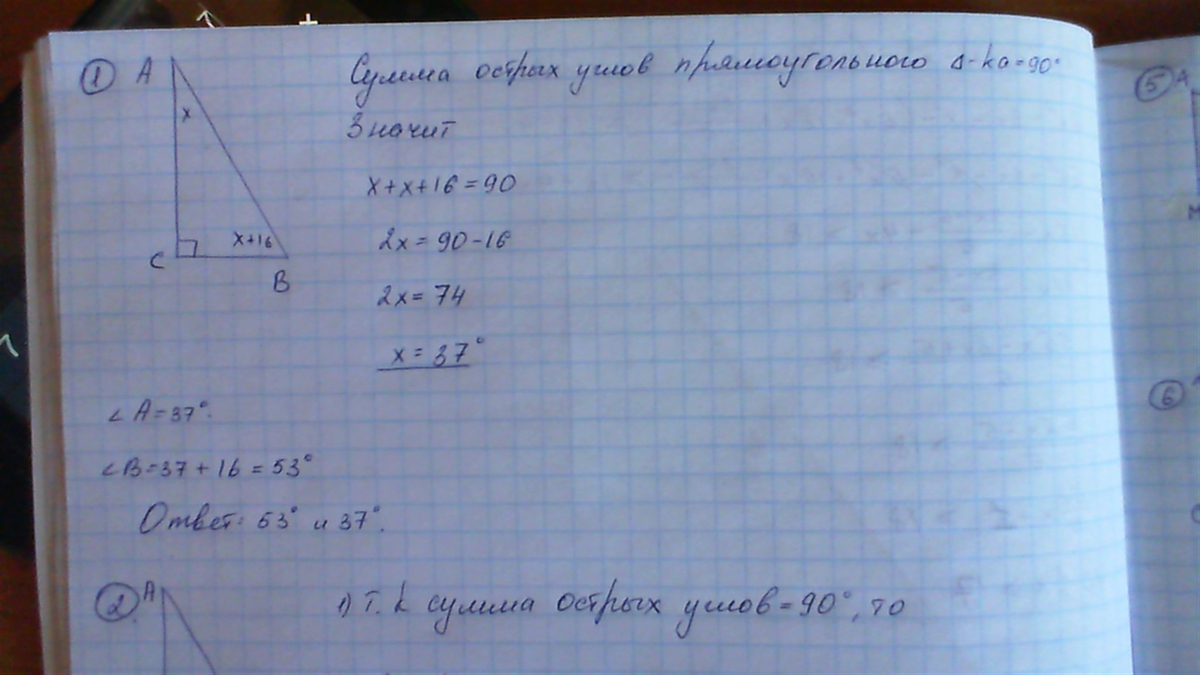 1 A Сумма острых углов прямоугольного Δ-ка=90°
x Значит
x+x+16=90
C x+16 B
2x=90-16
2x=74
x=37°
∠A=37°.
∠B=37+16=53°
Ответ: 53° и 37°.
2 A 1) Т. к сумма острых углов=90°, то
5 A
M
6